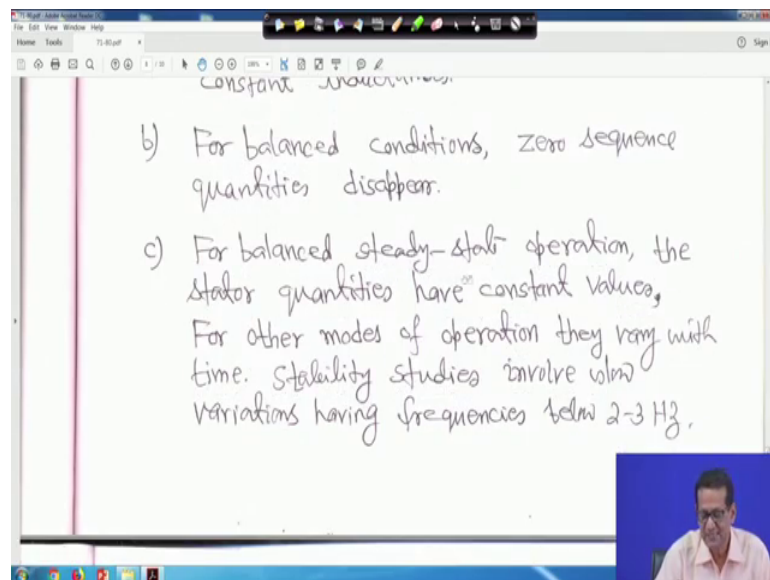 71-80.pdf - Adobe Acrobat Reader DC
File Edit View Window Help
Home Tools 71-80.pdf × Sign
constant inductances.
b) For balanced conditions, zero sequence
quantities disappear.
c) For balanced steady-state operation, the
stator quantities have constant values,
For other modes of operation they vary with
time. Stability studies involve slow
variations having frequencies below 2-3 Hz.